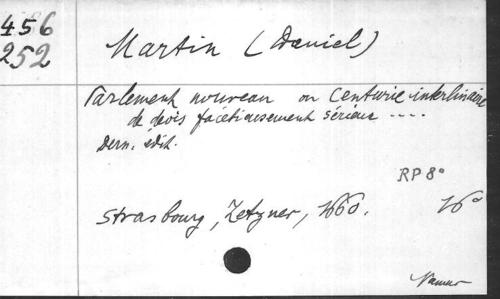 456
252
Martin (Daniel)
Parlement nouveau ou Centurie interlinaire
de devis facétieusement sérieux ....
Dern. édit.
RP 8°
Strasbourg, Zetzner, 1660. 16°
Namur